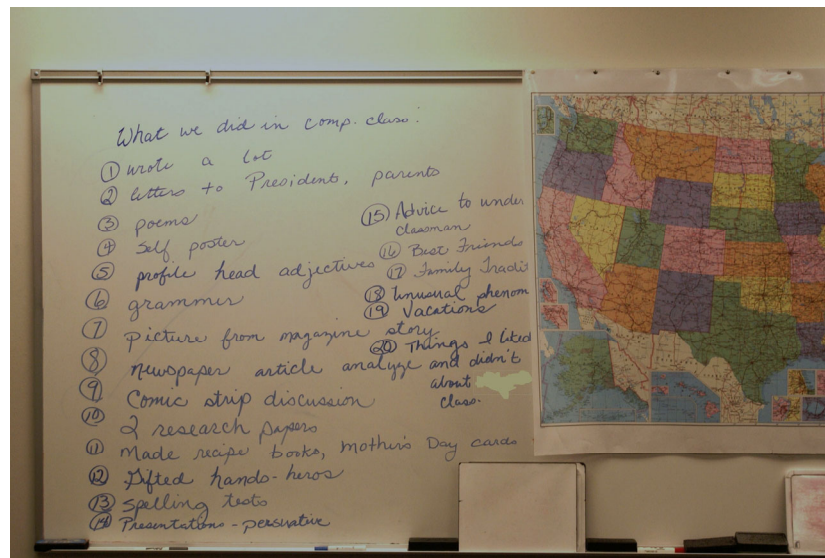 What we did in comp. class:
① wrote a lot
② letters to President, parents
③ poems
④ Self poster
⑤ profile head adjectives
⑥ grammer
⑦ picture from magazine story
⑧ newspaper article analyze
⑨ Comic strip discussion
⑩ 2 research papers
⑪ Made recipe books, Mother's Day cards
⑫ Gifted hands - heros
⑬ Spelling tests
⑭ Presentations - persuative
⑮ Advice to under
classman
⑯ Best Friends
⑰ Family Tradi
⑱ Unusual phenom
⑲ Vacations
⑳ Things I liked
and didn't
about
class.